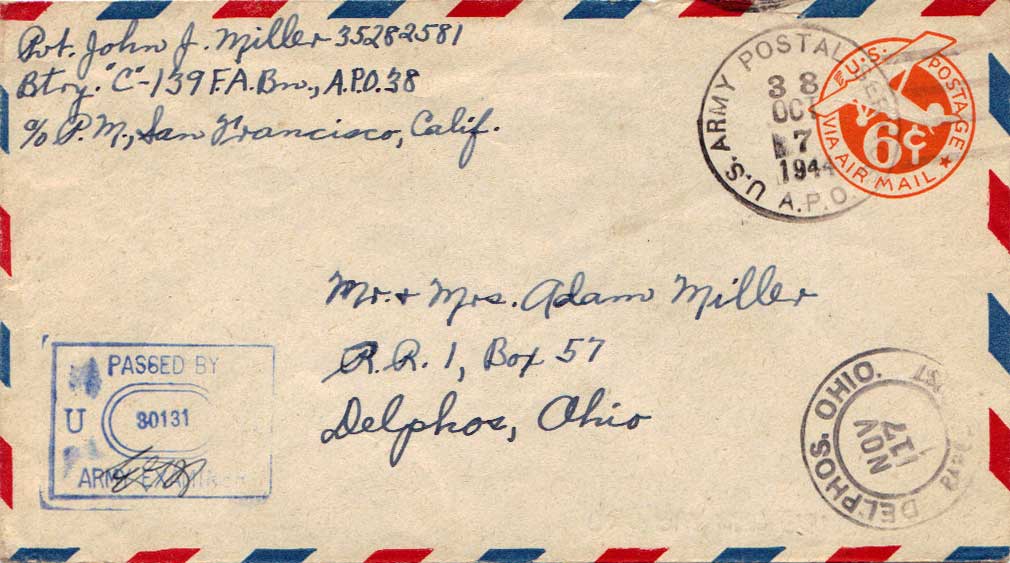 Pvt. John J. Miller 35282581
Btry. "C"-139 F.A. Bn., A.P.O. 38
c/o P.M., San Francisco, Calif.
U.S. ARMY POSTAL
38
OCT
7
1944
A.P.O.
U.S. POSTAGE
6¢
VIA AIR MAIL
Mr. & Mrs. Adam Miller
R.R. 1, Box 57
Delphos, Ohio
PASSED BY
U
30131
ARMY EXAMINER
DELPHOS. OHIO.
NOV